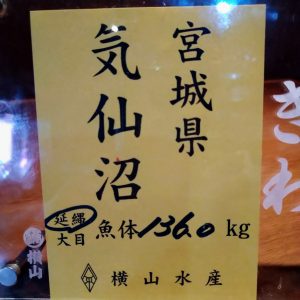 宮城県
気仙沼
延縄
大目
魚体 136.0 kg
横山水産
横山
きわ